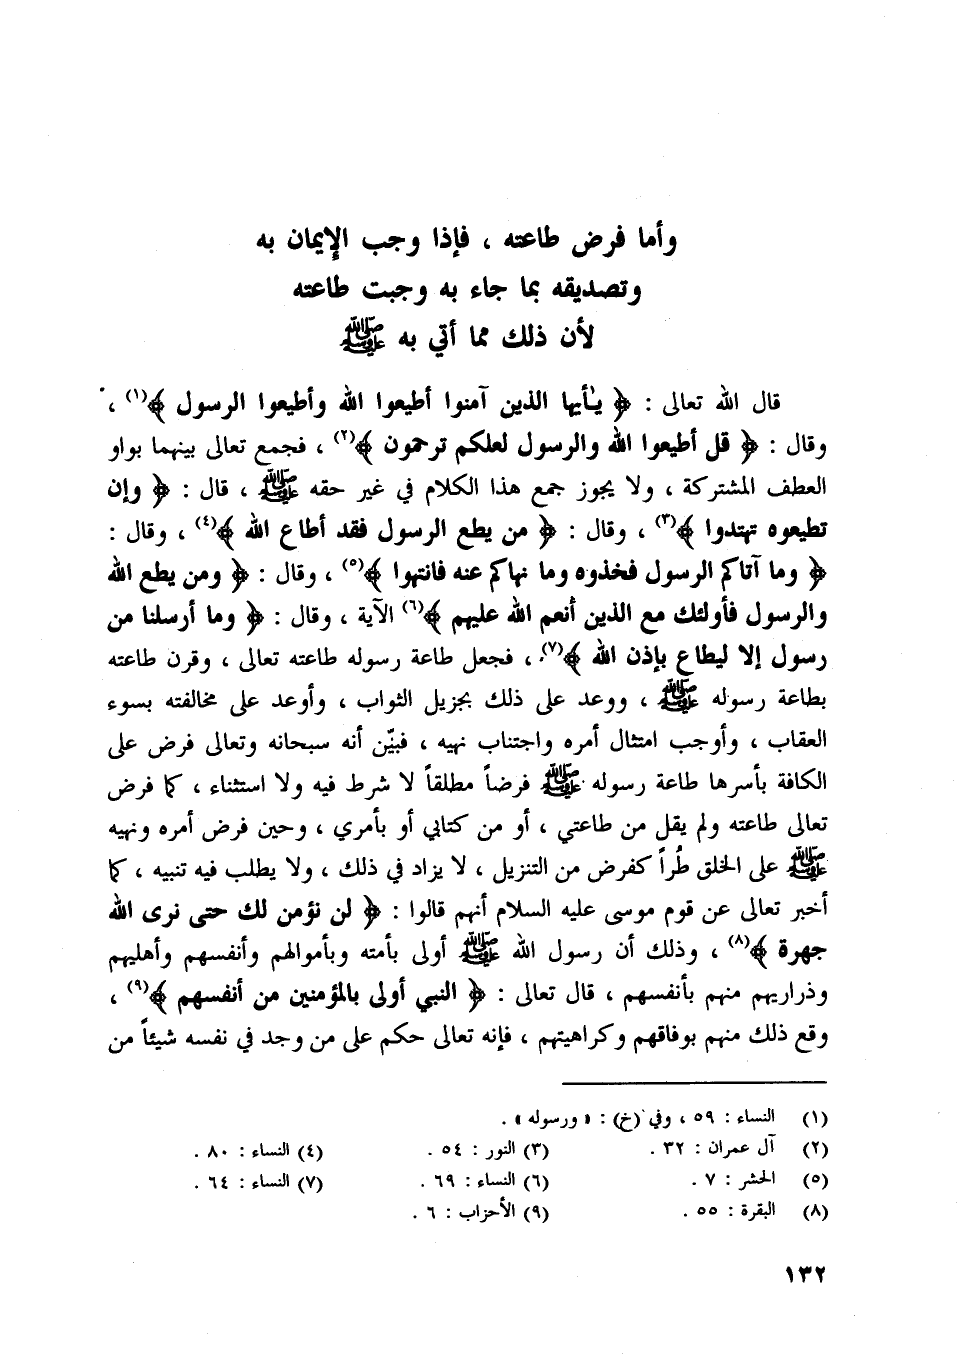 وأما فرض طاعته ، فإذا وجب الإيمان به
وتصديقه بما جاء به وجبت طاعته
لأن ذلك مما أتي به ﷺ
قال الله تعالى : ﴿ يٰأيها الذين آمنوا أطيعوا الله وأطيعوا الرسول ﴾(١) ،
وقال : ﴿ قل أطيعوا الله والرسول لعلكم ترحمون ﴾(٢) ، فجمع تعالى بينهما بواو
العطف المشتركة ، ولا يجوز جمع هذا الكلام في غير حقه ﷺ ، قال : ﴿ وإن
تطيعوه تهتدوا ﴾(٣) ، وقال : ﴿ من يطع الرسول فقد أطاع الله ﴾(٤) ، وقال :
﴿ وما آتاكم الرسول فخذوه وما نهاكم عنه فانتهوا ﴾(٥) ، وقال : ﴿ ومن يطع الله
والرسول فأولئك مع الذين أنعم الله عليهم ﴾(٦) الآية ، وقال : ﴿ وما أرسلنا من
رسول إلا ليطاع بإذن الله ﴾(٧) ، فجعل طاعة رسوله طاعته تعالى ، وقرن طاعته
بطاعة رسوله ﷺ ، ووعد على ذلك بجزيل الثواب ، وأوعد على مخالفته بسوء
العقاب ، وأوجب امتثال أمره واجتناب نهيه ، فبيّن أنه سبحانه وتعالى فرض على
الكافة بأسرها طاعة رسوله ﷺ فرضاً مطلقاً لا شرط فيه ولا استثناء ، كما فرض
تعالى طاعته ولم يقل من طاعتي ، أو من كتابي أو بأمري ، وحين فرض أمره ونهيه
ﷺ على الخلق طُراً كفرض من التنزيل ، لا يزاد في ذلك ، ولا يطلب فيه تنبيه ، كما
أخبر تعالى عن قوم موسى عليه السلام أنهم قالوا : ﴿ لن نؤمن لك حتى نرى الله
جهرة ﴾(٨) ، وذلك أن رسول الله ﷺ أولى بأمته وبأموالهم وأنفسهم وأهليهم
وذراريهم منهم بأنفسهم ، قال تعالى : ﴿ النبي أولى بالمؤمنين من أنفسهم ﴾(٩) ،
وقع ذلك منهم بوفاقهم وكراهيتهم ، فإنه تعالى حكم على من وجد في نفسه شيئاً من
(١) النساء : ٥٩ ، وفي (خ) : « ورسوله » .
(٢) آل عمران : ٣٢ . (٣) النور : ٥٤ . (٤) النساء : ٨٠ .
(٥) الحشر : ٧ . (٦) النساء : ٦٩ . (٧) النساء : ٦٤ .
(٨) البقرة : ٥٥ . (٩) الأحزاب : ٦ .
١٣٢